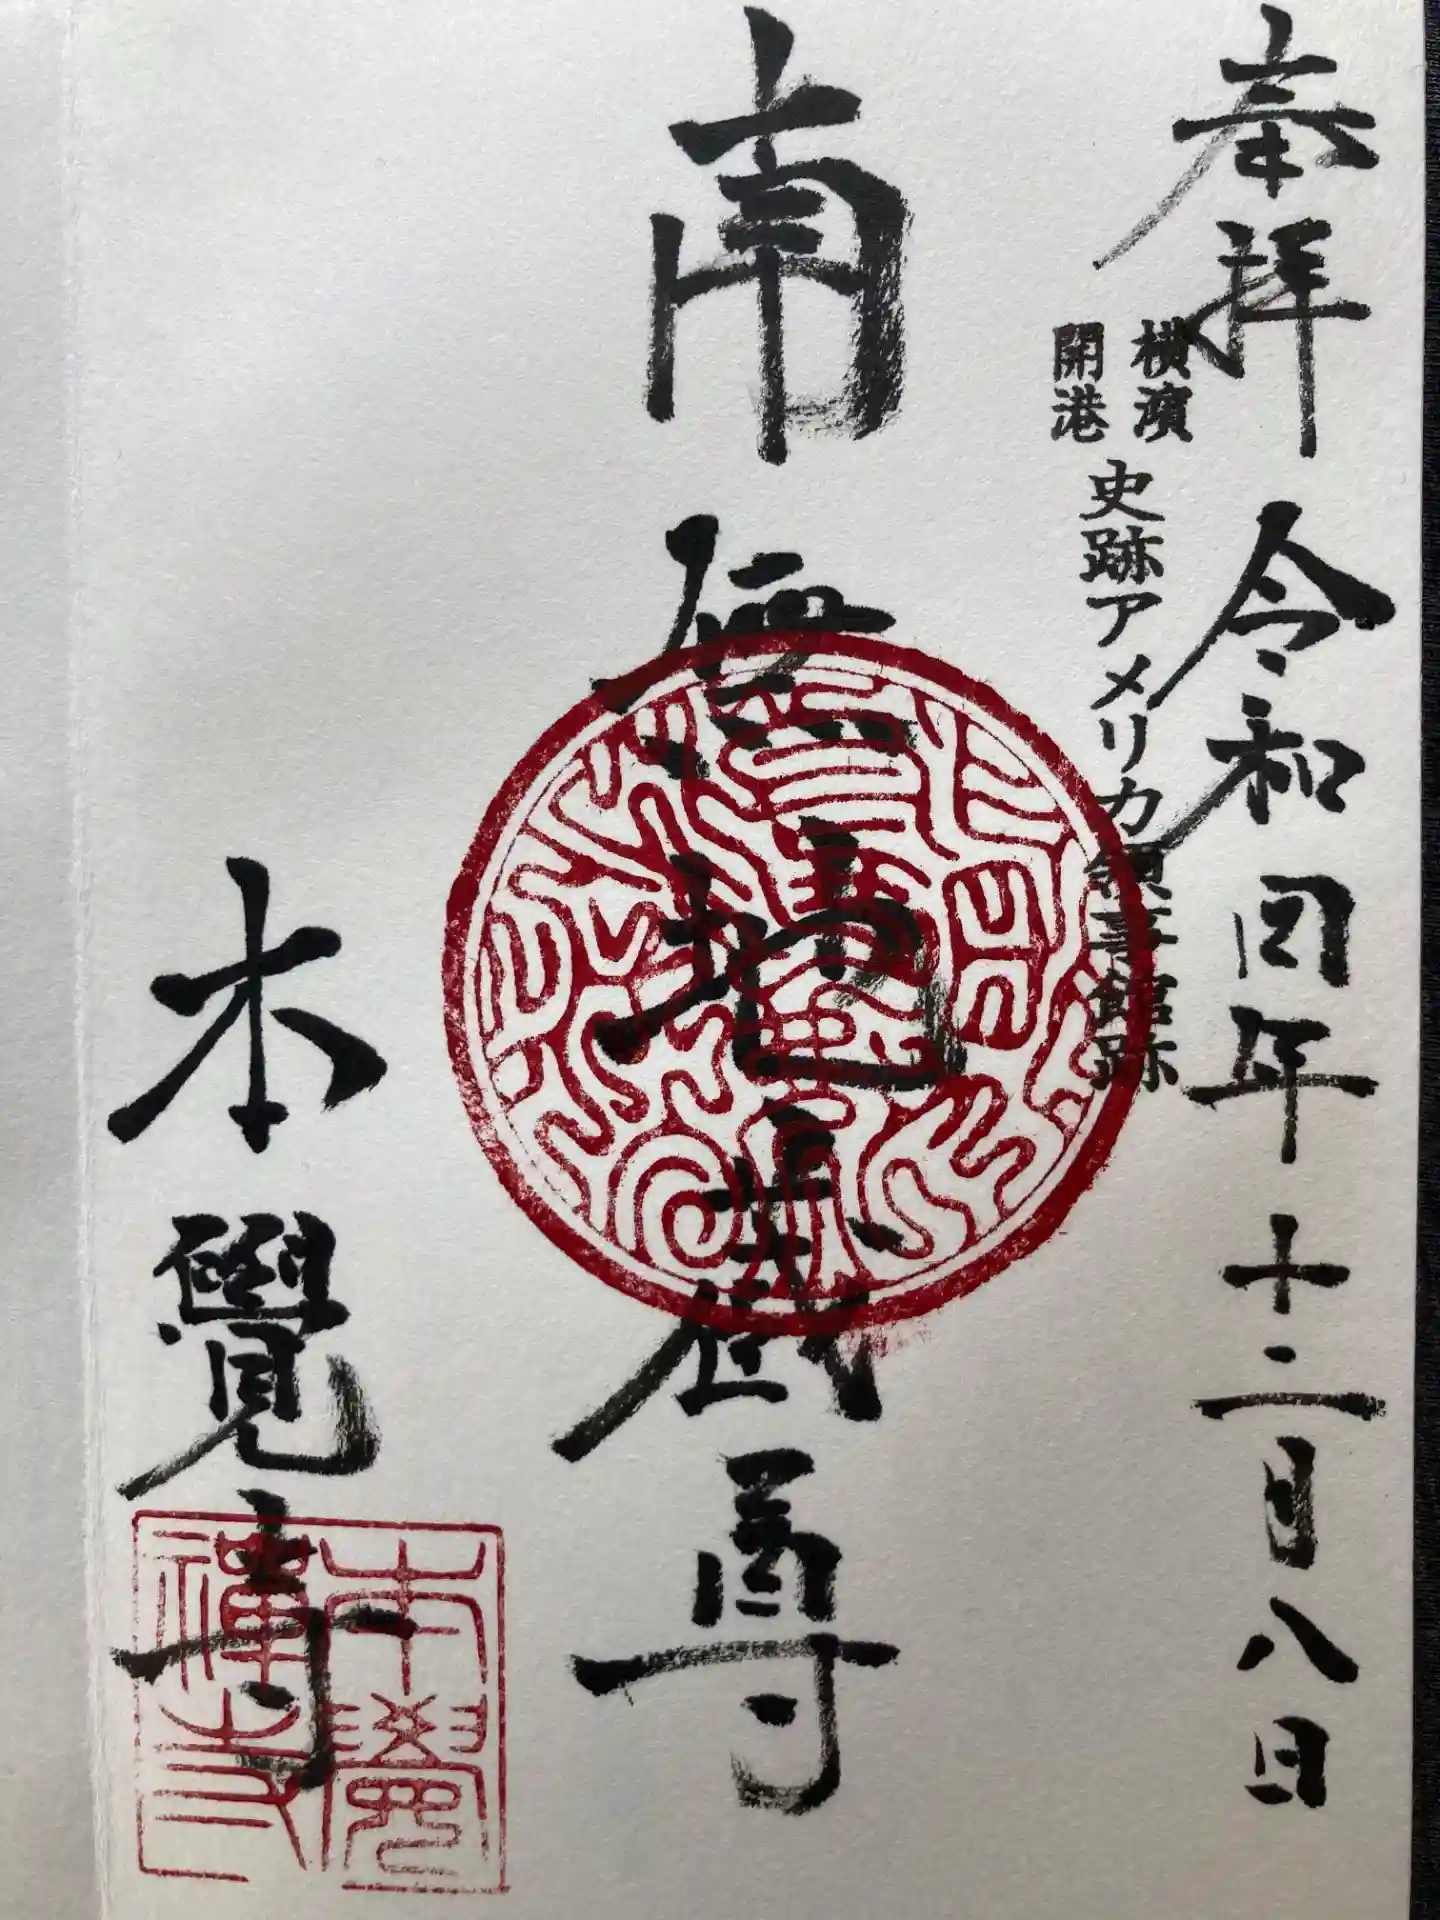 奉拝 令和四年十二月八日
横濱
開港
史跡アメリカ領事館跡
南無地蔵尊
本覺寺
本覺
禪寺